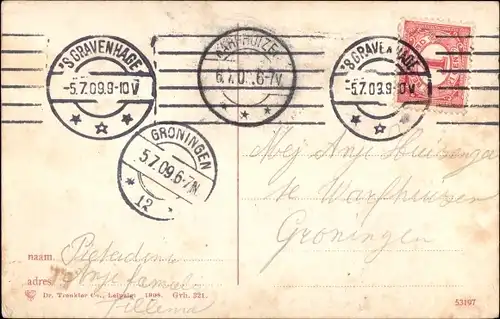 'S GRAVENHAGE
-5.7.09.9-10V
WARFHUIZEN
6.7.0 .6-7V.
'S GRAVENHAGE
-5.7.09.9-10V
1
GRONINGEN
5.7.09.6-7N
12
Mej Anje Huizenga
te Warfhuizen
Groningen
naam:
adres:
Anje familie
Dr. Trenkler Co., Leipzig 1908. Grb. 321.
53197